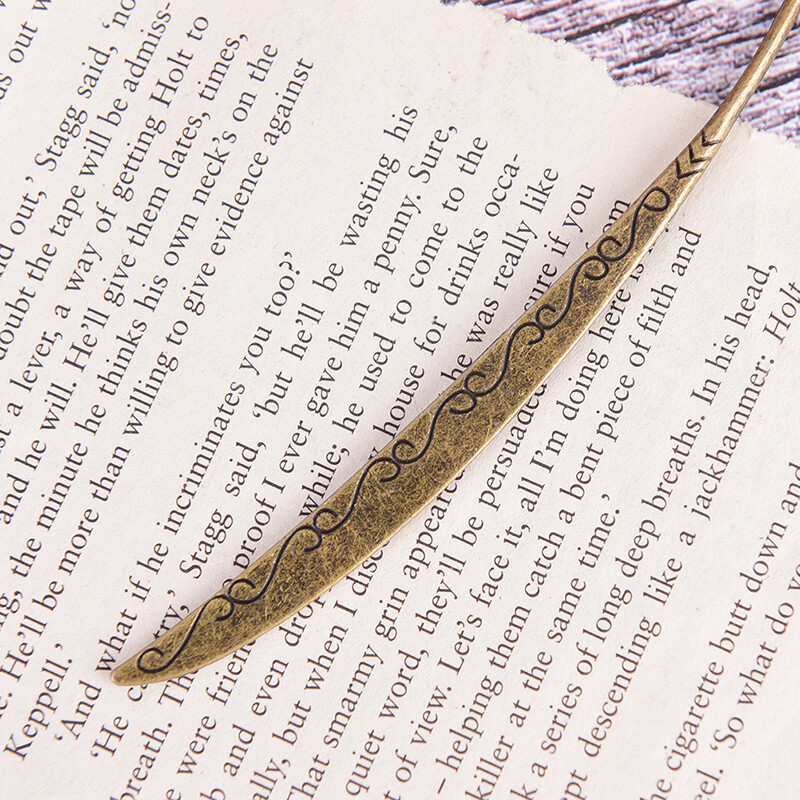 s out w
d out,' Stagg said, 'no
doubt the tape will be admiss-
a lever, a way of getting Holt to
and he will. He'll give them dates, times,
the minute he thinks his own neck's on the
He'll be more than willing to give evidence against
Keppell.'
'And what if he incriminates you too?'
'He Stagg said, 'but he'll be wasting his
breath. proof I ever gave him a penny. Sure,
were while; he used to come to the
and even house for drinks occa-
ally, but when I he was really like
smarmy grin appeared sure if you
quiet word, they'll be persuaded
of view. Let's face it, all I'm doing here is
– helping them catch a bent piece of filth and
killer at the same time.'
a series of long deep breaths. In his head,
descending like a jackhammer: Holt
cigarette butt down and
'So what do